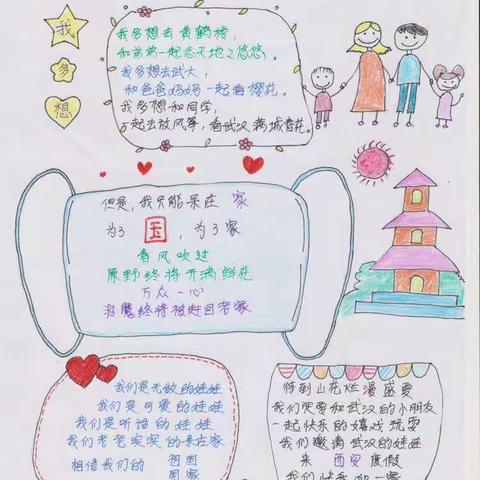 我
多
想
我多想去黄鹤楼
和弟弟一起念天地之悠悠。
我多想去武大,
和爸爸妈妈一起看樱花。
我多想和同学,
一起去放风筝,看武汉满城杏花。
但是,我只能呆在 家
为了 国 ,为了家
春风吹过
原野终将开满鲜花
万众一心
病魔终将被赶回老家
我们是无敌的娃娃
我们是可爱的娃娃
我们是听话的娃娃
我们老老实实的呆在家
相信我们的 祖国
国家
待到山花烂漫盛夏
我们定要和武汉的小朋友
一起快乐的嬉戏玩耍
我们邀请武汉的娃娃
来 西安 度假
我们快乐如一家